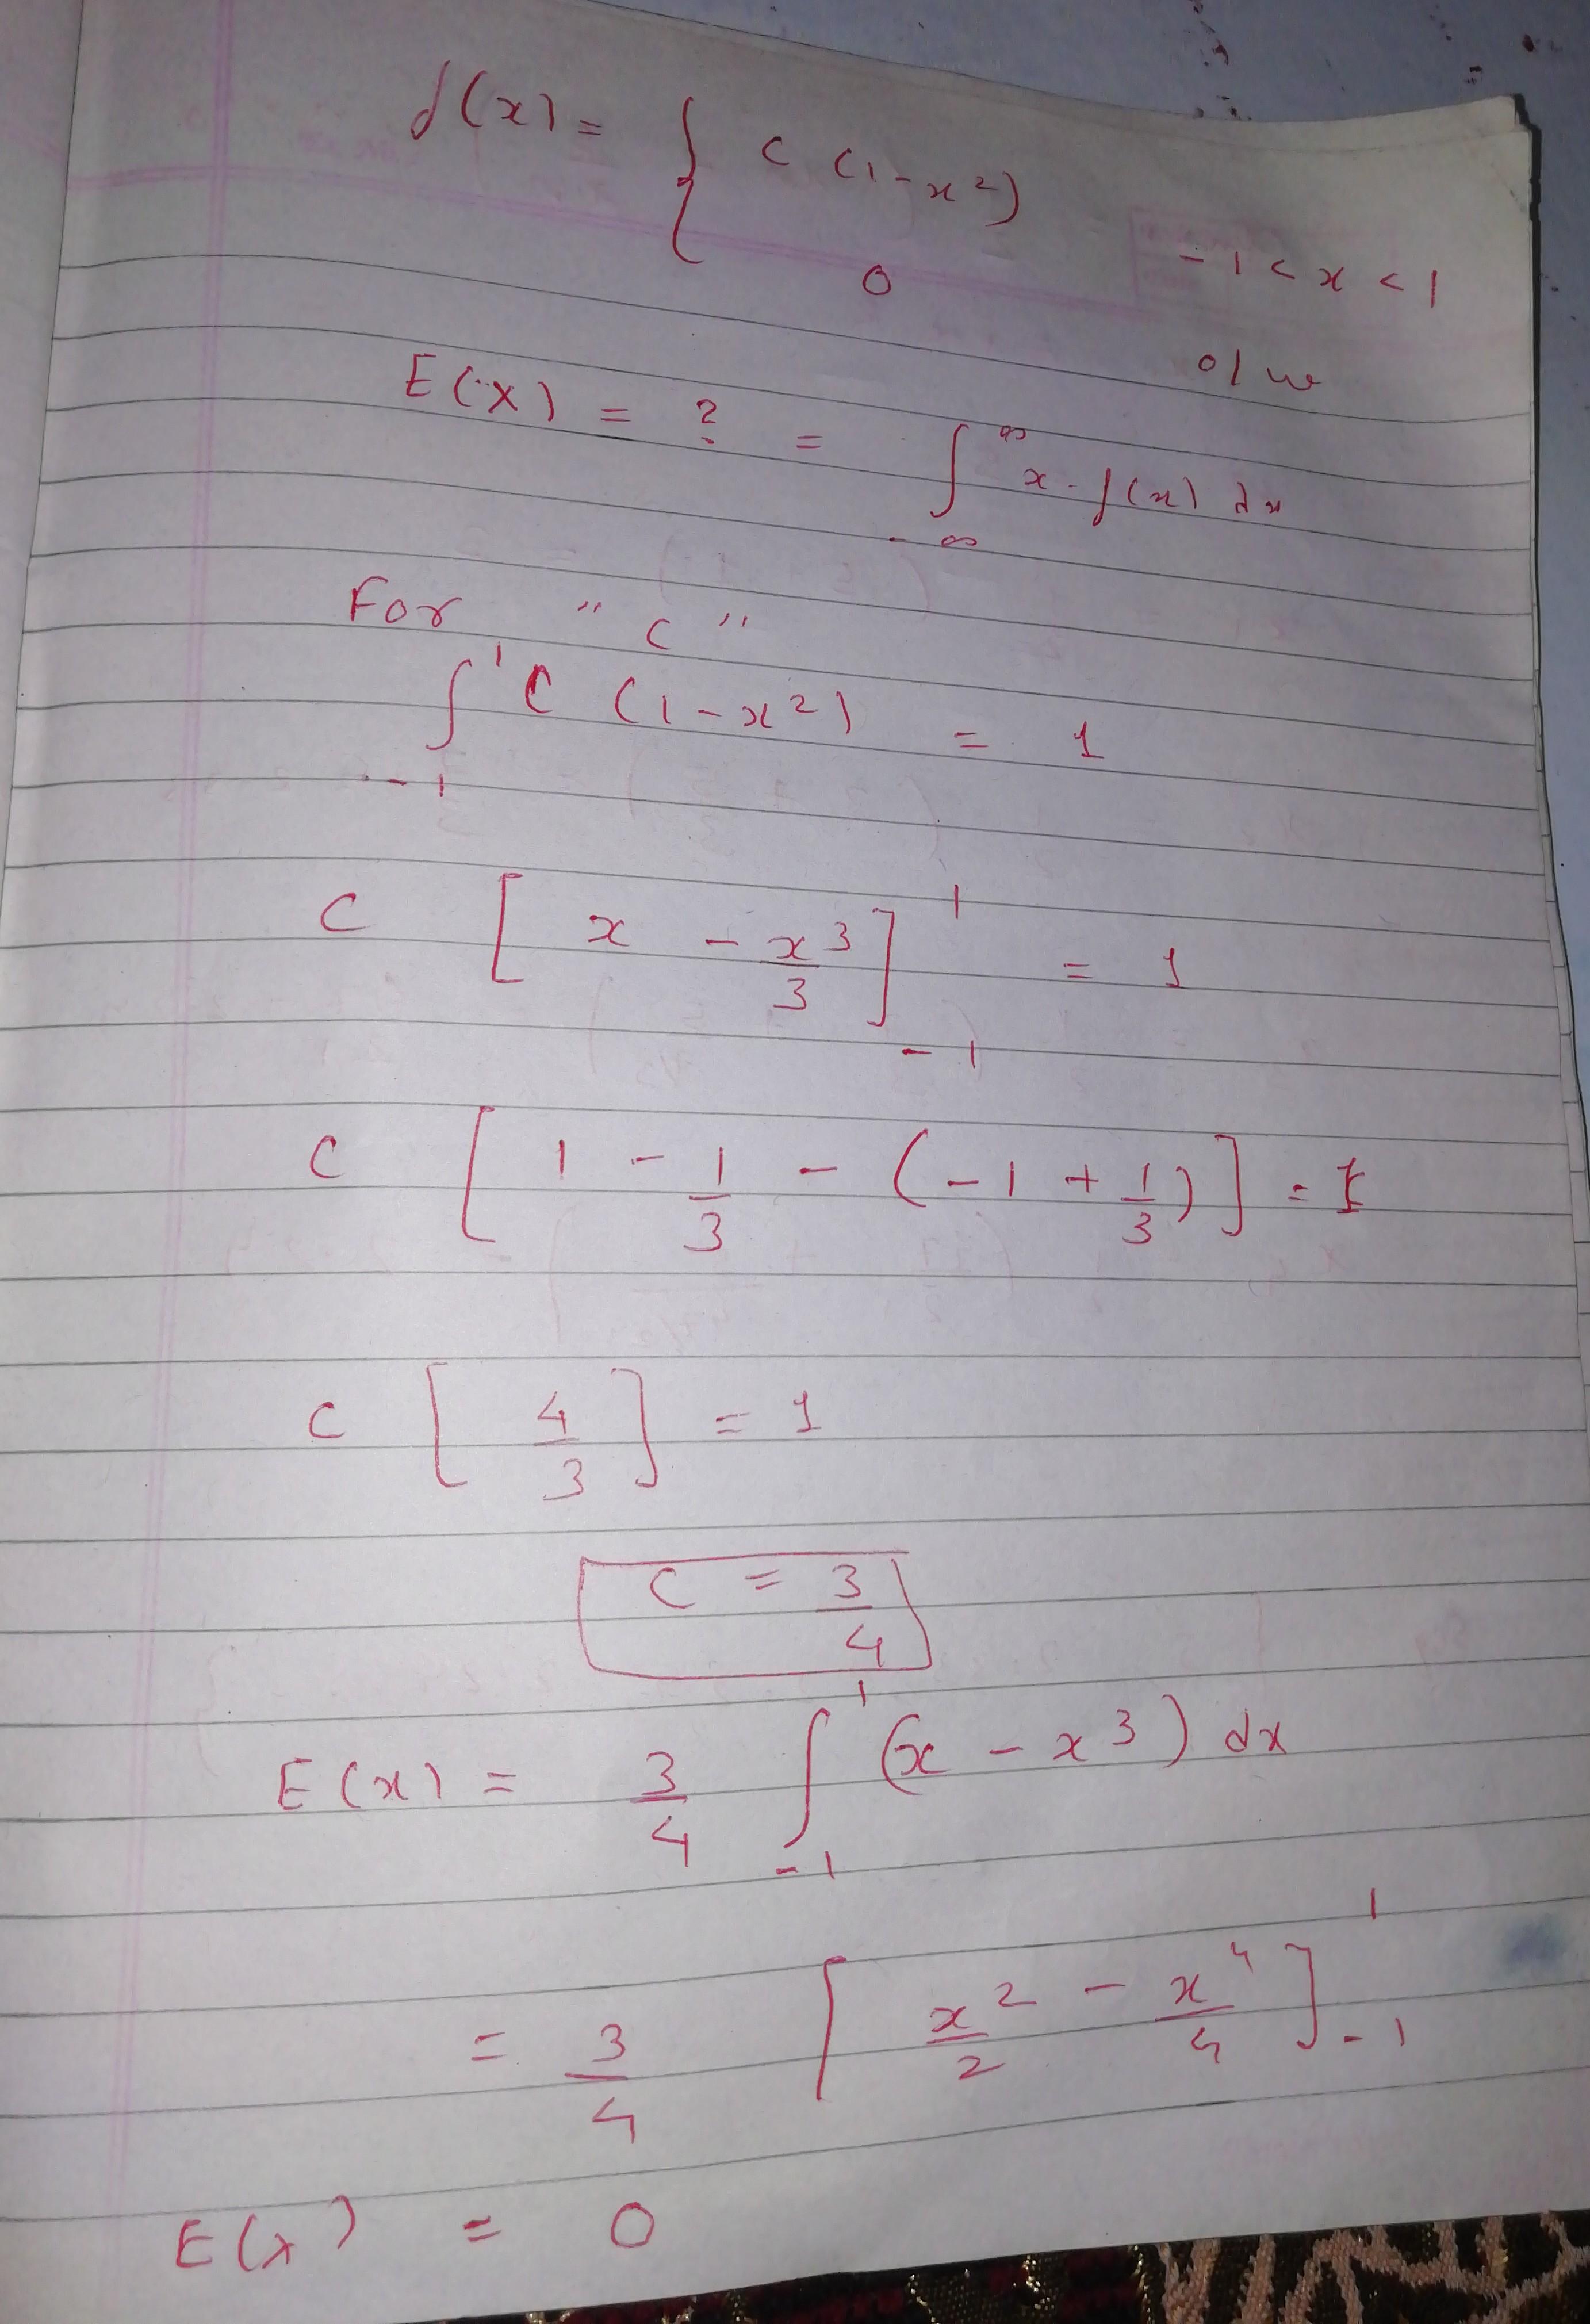 f(x) = { C (1-x²) -1 < x < 1
0 o/w
E(X) = ? = ∫_{-∞}^{∞} x · f(x) dx
For "C"
∫_{-1}^{1} C (1-x²) = 1
C [x - x³/3]_{-1}^{1} = 1
C [1 - 1/3 - (-1 + 1/3)] = 1
C [4/3] = 1
C = 3/4
E(x) = 3/4 ∫_{-1}^{1} (x - x³) dx
= 3/4 [x²/2 - x⁴/4]_{-1}^{1}
E(x) = 0